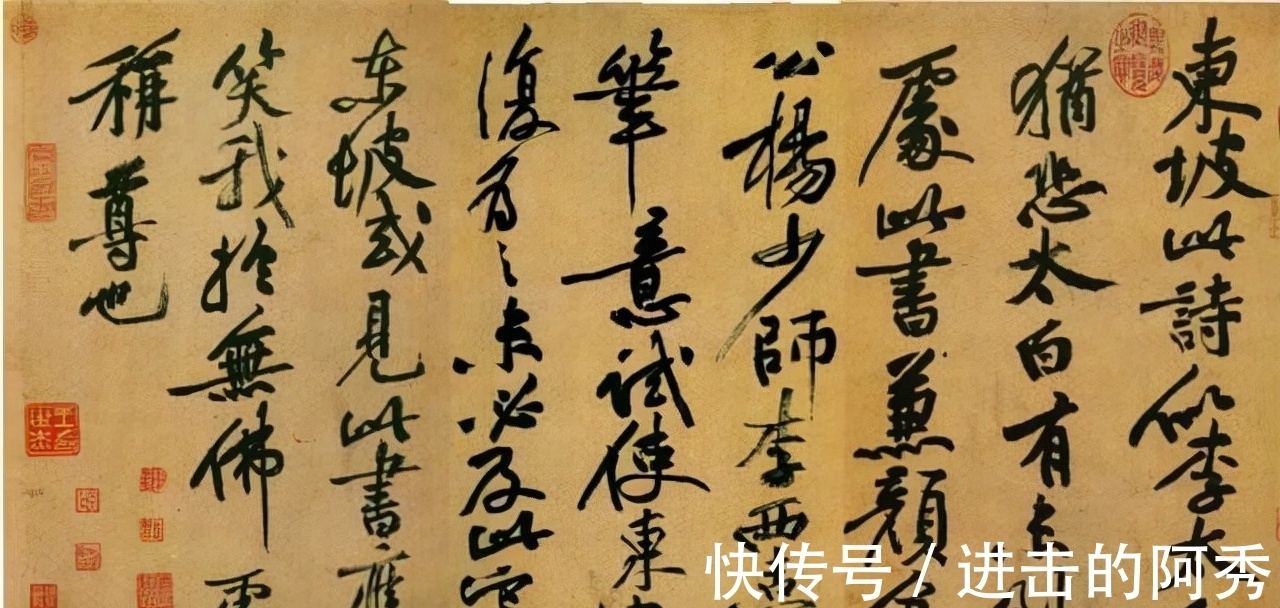 東坡此詩似李太
猶恐太白有未到
處此書兼顏魯
公楊少師李西臺
筆意試使東坡
復為之未必及此它
東坡或見此書應
笑我於無佛處
稱尊也
快传号 / 进击的阿秀